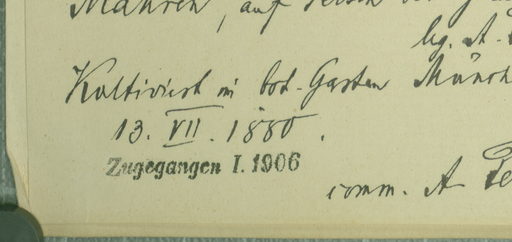 Mähren, auf
lg. A.
Kultiviert in bot. Garten Münch
13. VII. 1880.
Zugegangen I. 1906
comm. A Pe